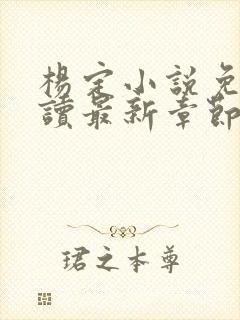 楊定小說免
讀最新章節
珺之本尊